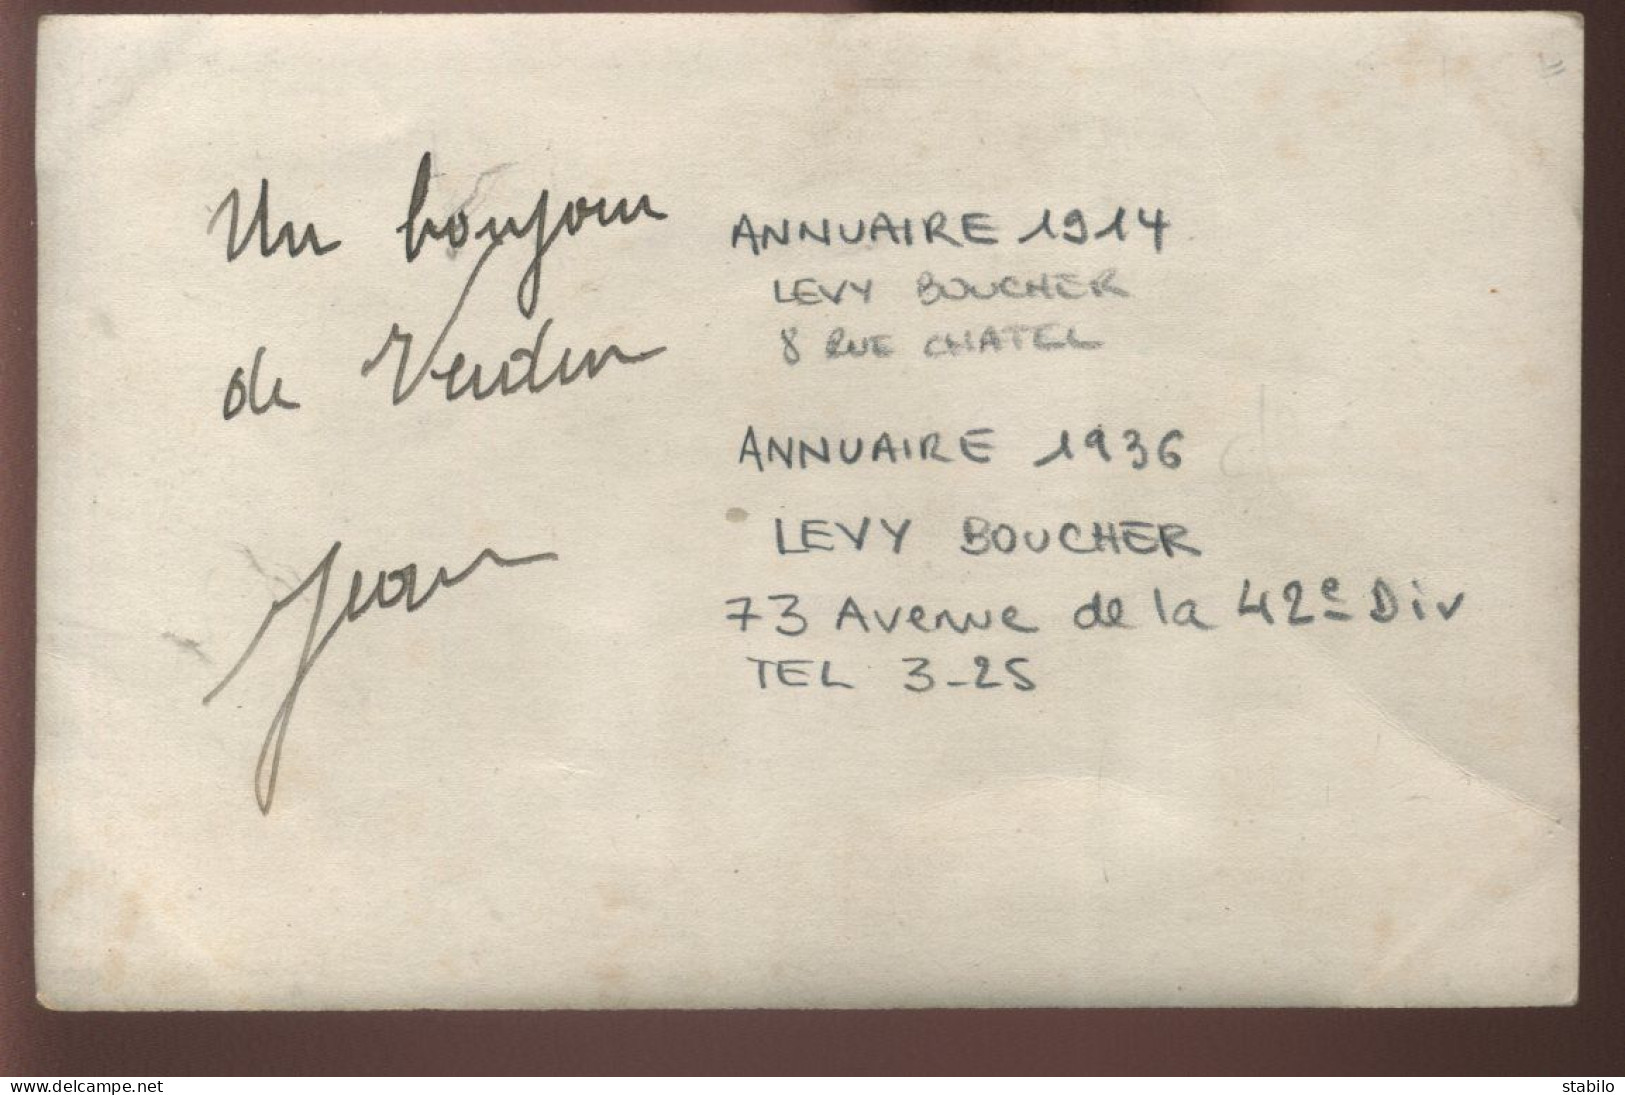 Un bonjour
de Verdun
Jean
ANNUAIRE 1914
LEVY BOUCHER
8 RUE CHATEL
ANNUAIRE 1936
LEVY BOUCHER
73 Avenue de la 42e Div
TEL 3-25
www.delcampe.net
stabilo